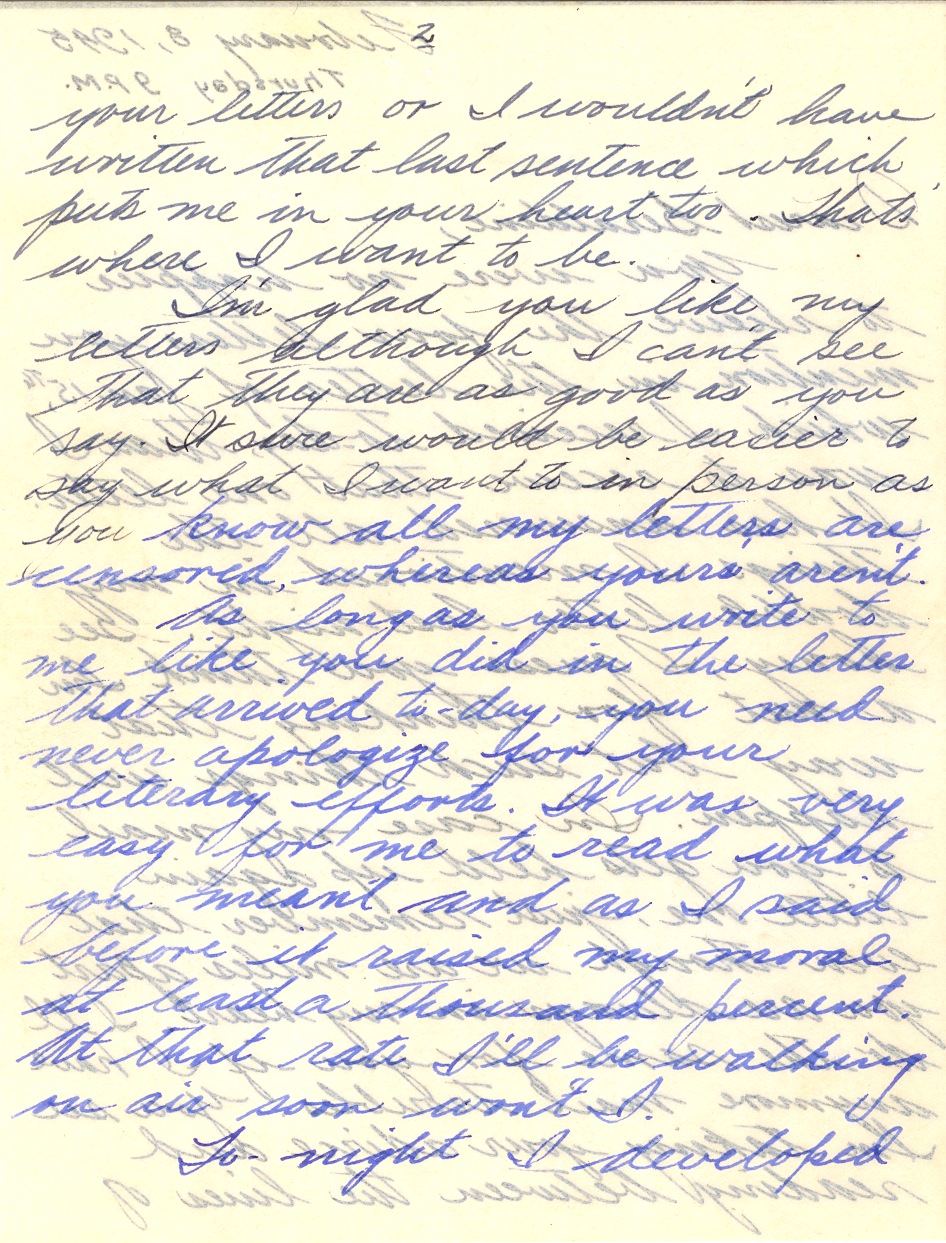 2
your letters or I wouldn't have
written that last sentence which
puts me in your heart too. Thats
where I want to be.
I'm glad you like my
letters although I can't see
that they are as good as you
say. It sure would be easier to
say what I want to in person as
you know all my letters are
censored, whereas yours aren't.
As long as you write to
me like you did in the letter
that arrived to-day, you need
never apologize for your
literary efforts. It was very
easy for me to read what
you meant and as I said
before it raised my moral
at least a thousand percent.
At that rate I'll be walking
on air soon won't I.
To-night I developed